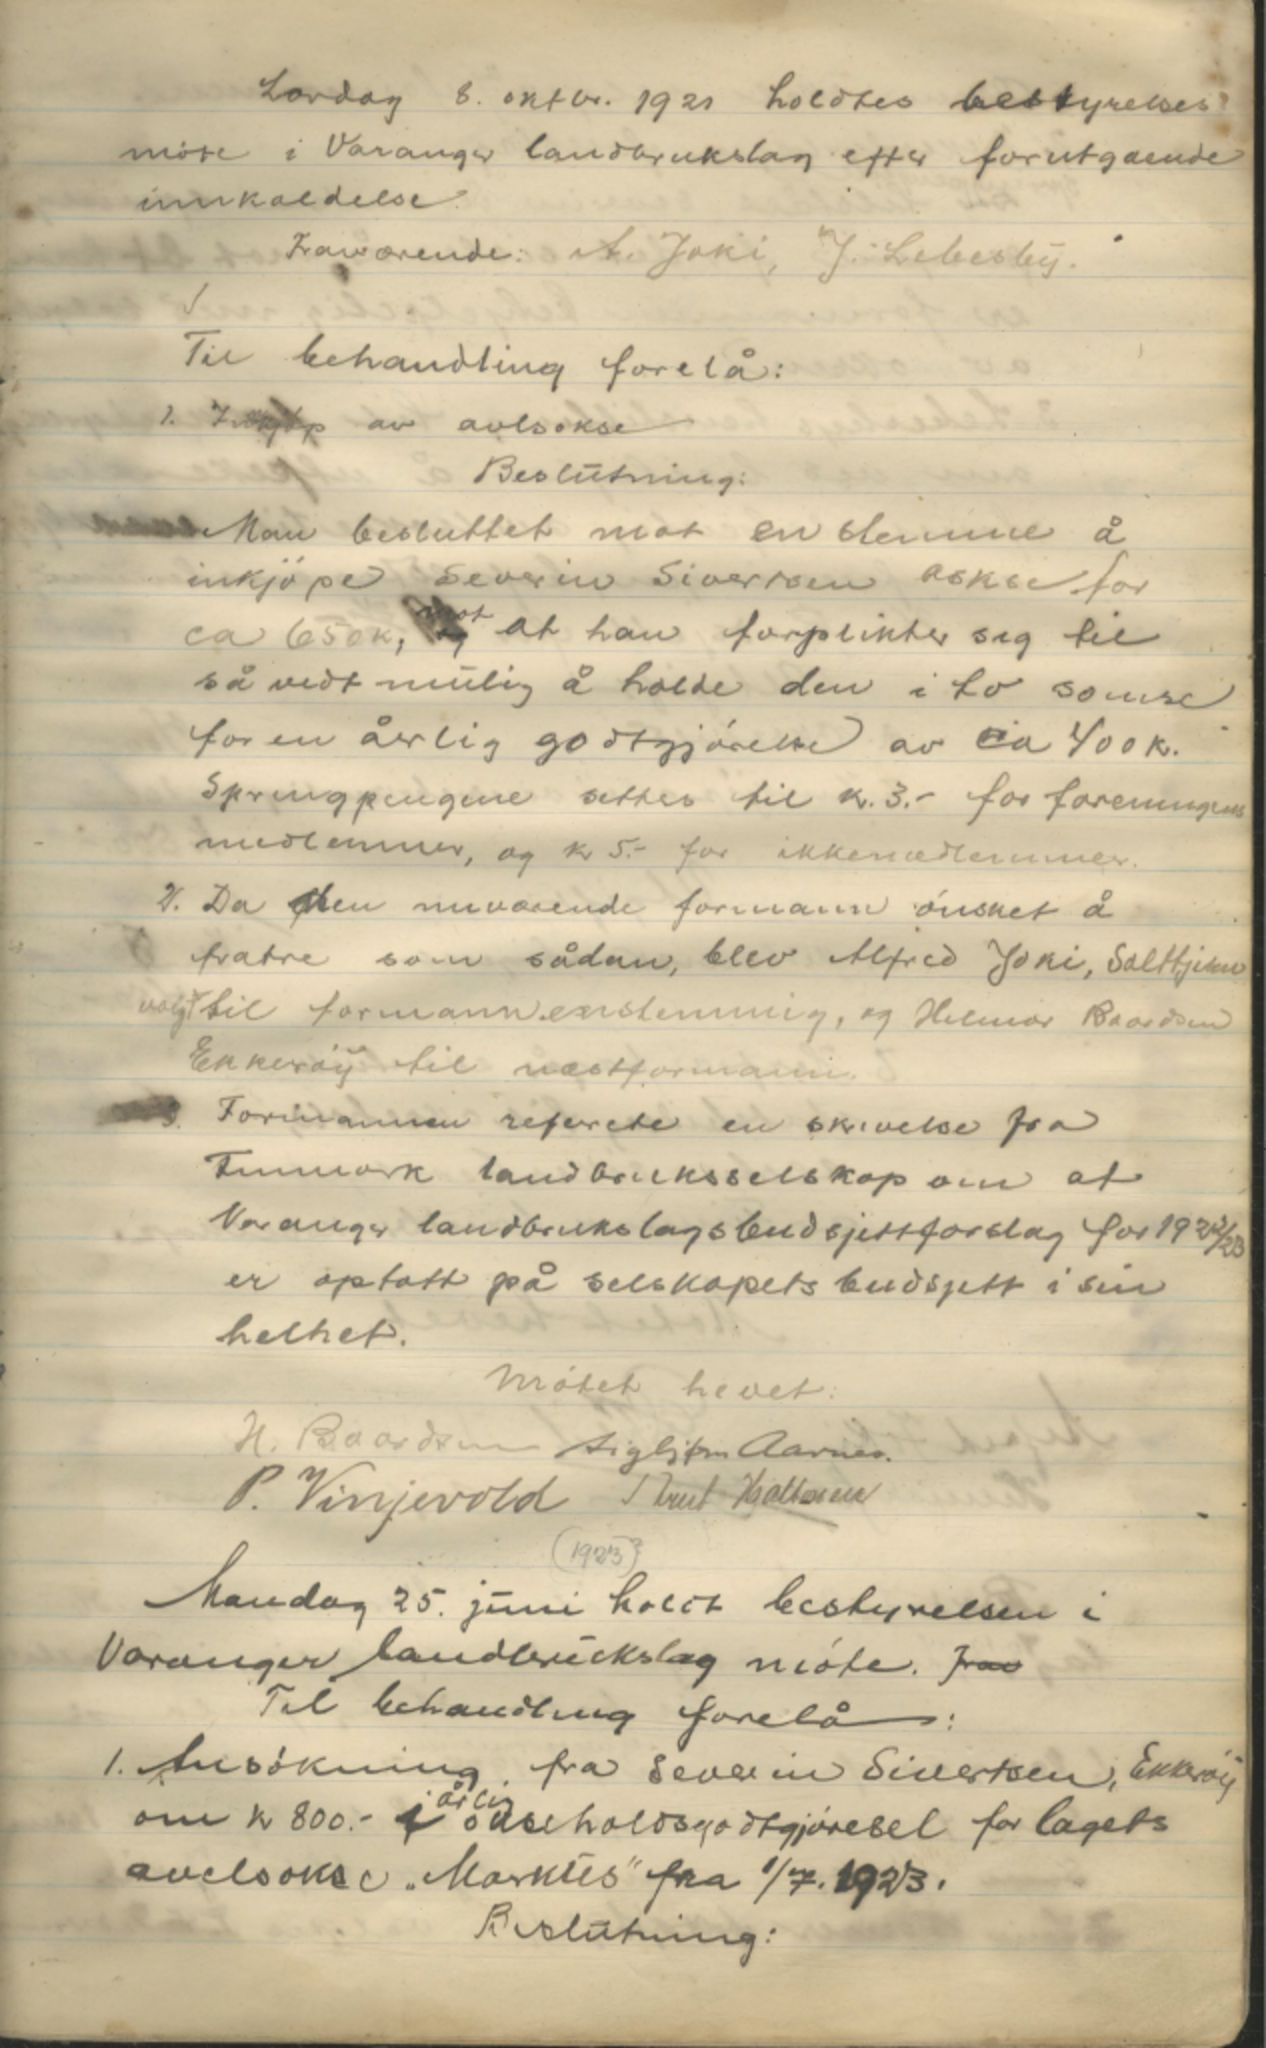 Lørdag 8. oktbr. 1921 holdtes bestyrelses
møte i Varanger landbrukslag efter forutgaende
innkaldelse.
Fraværende: A. Joki, J. Lebesby.
Til behandling forelå:
1. Inkjøp av avlsokse
Beslutning:
Man besluttet mot en stemme å
inkjøpe Severin Sivertsen okse for
ca 650 k, mot at han forplikter sig til
så vidt mulig å holde den i to somre
for en årlig godtgjørelse av ca 400 k.
Springpengene settes til k. 3.- for foreningens
medlemmer, og kr 5.- for ikkemedlemmer.
2. Da den nuværende formann ønsket å
fratre som sådan, blev Alfred Joki, Salttjern
valgt til formann enstemmig, og Helmer Baardsen
Ekkerøy til næstformann.
3. Formannen referete en skrivelse fra
Finmark landbruksselskap om at
Varanger landbrukslags budsjettforslag for 1922/23
er optatt på selskapets budsjett i sin
helhet.
Møtet hevet.
H. Baardsen Sigbjørn Aarnes.
P. Vinjevold Knut Haltonen
(1923?)
Mandag 25. juni holdt bestyrelsen i
Varanger landbrukslag møte. Frav
Til behandling forelå:
1. Ansøkning fra Severin Sivertsen, Ekkerøy
om kr 800.- i årlig okseholdsgodtgjøresel for lagets
avelsokse „Markus" fra 1/7. 1923.
Beslutning: